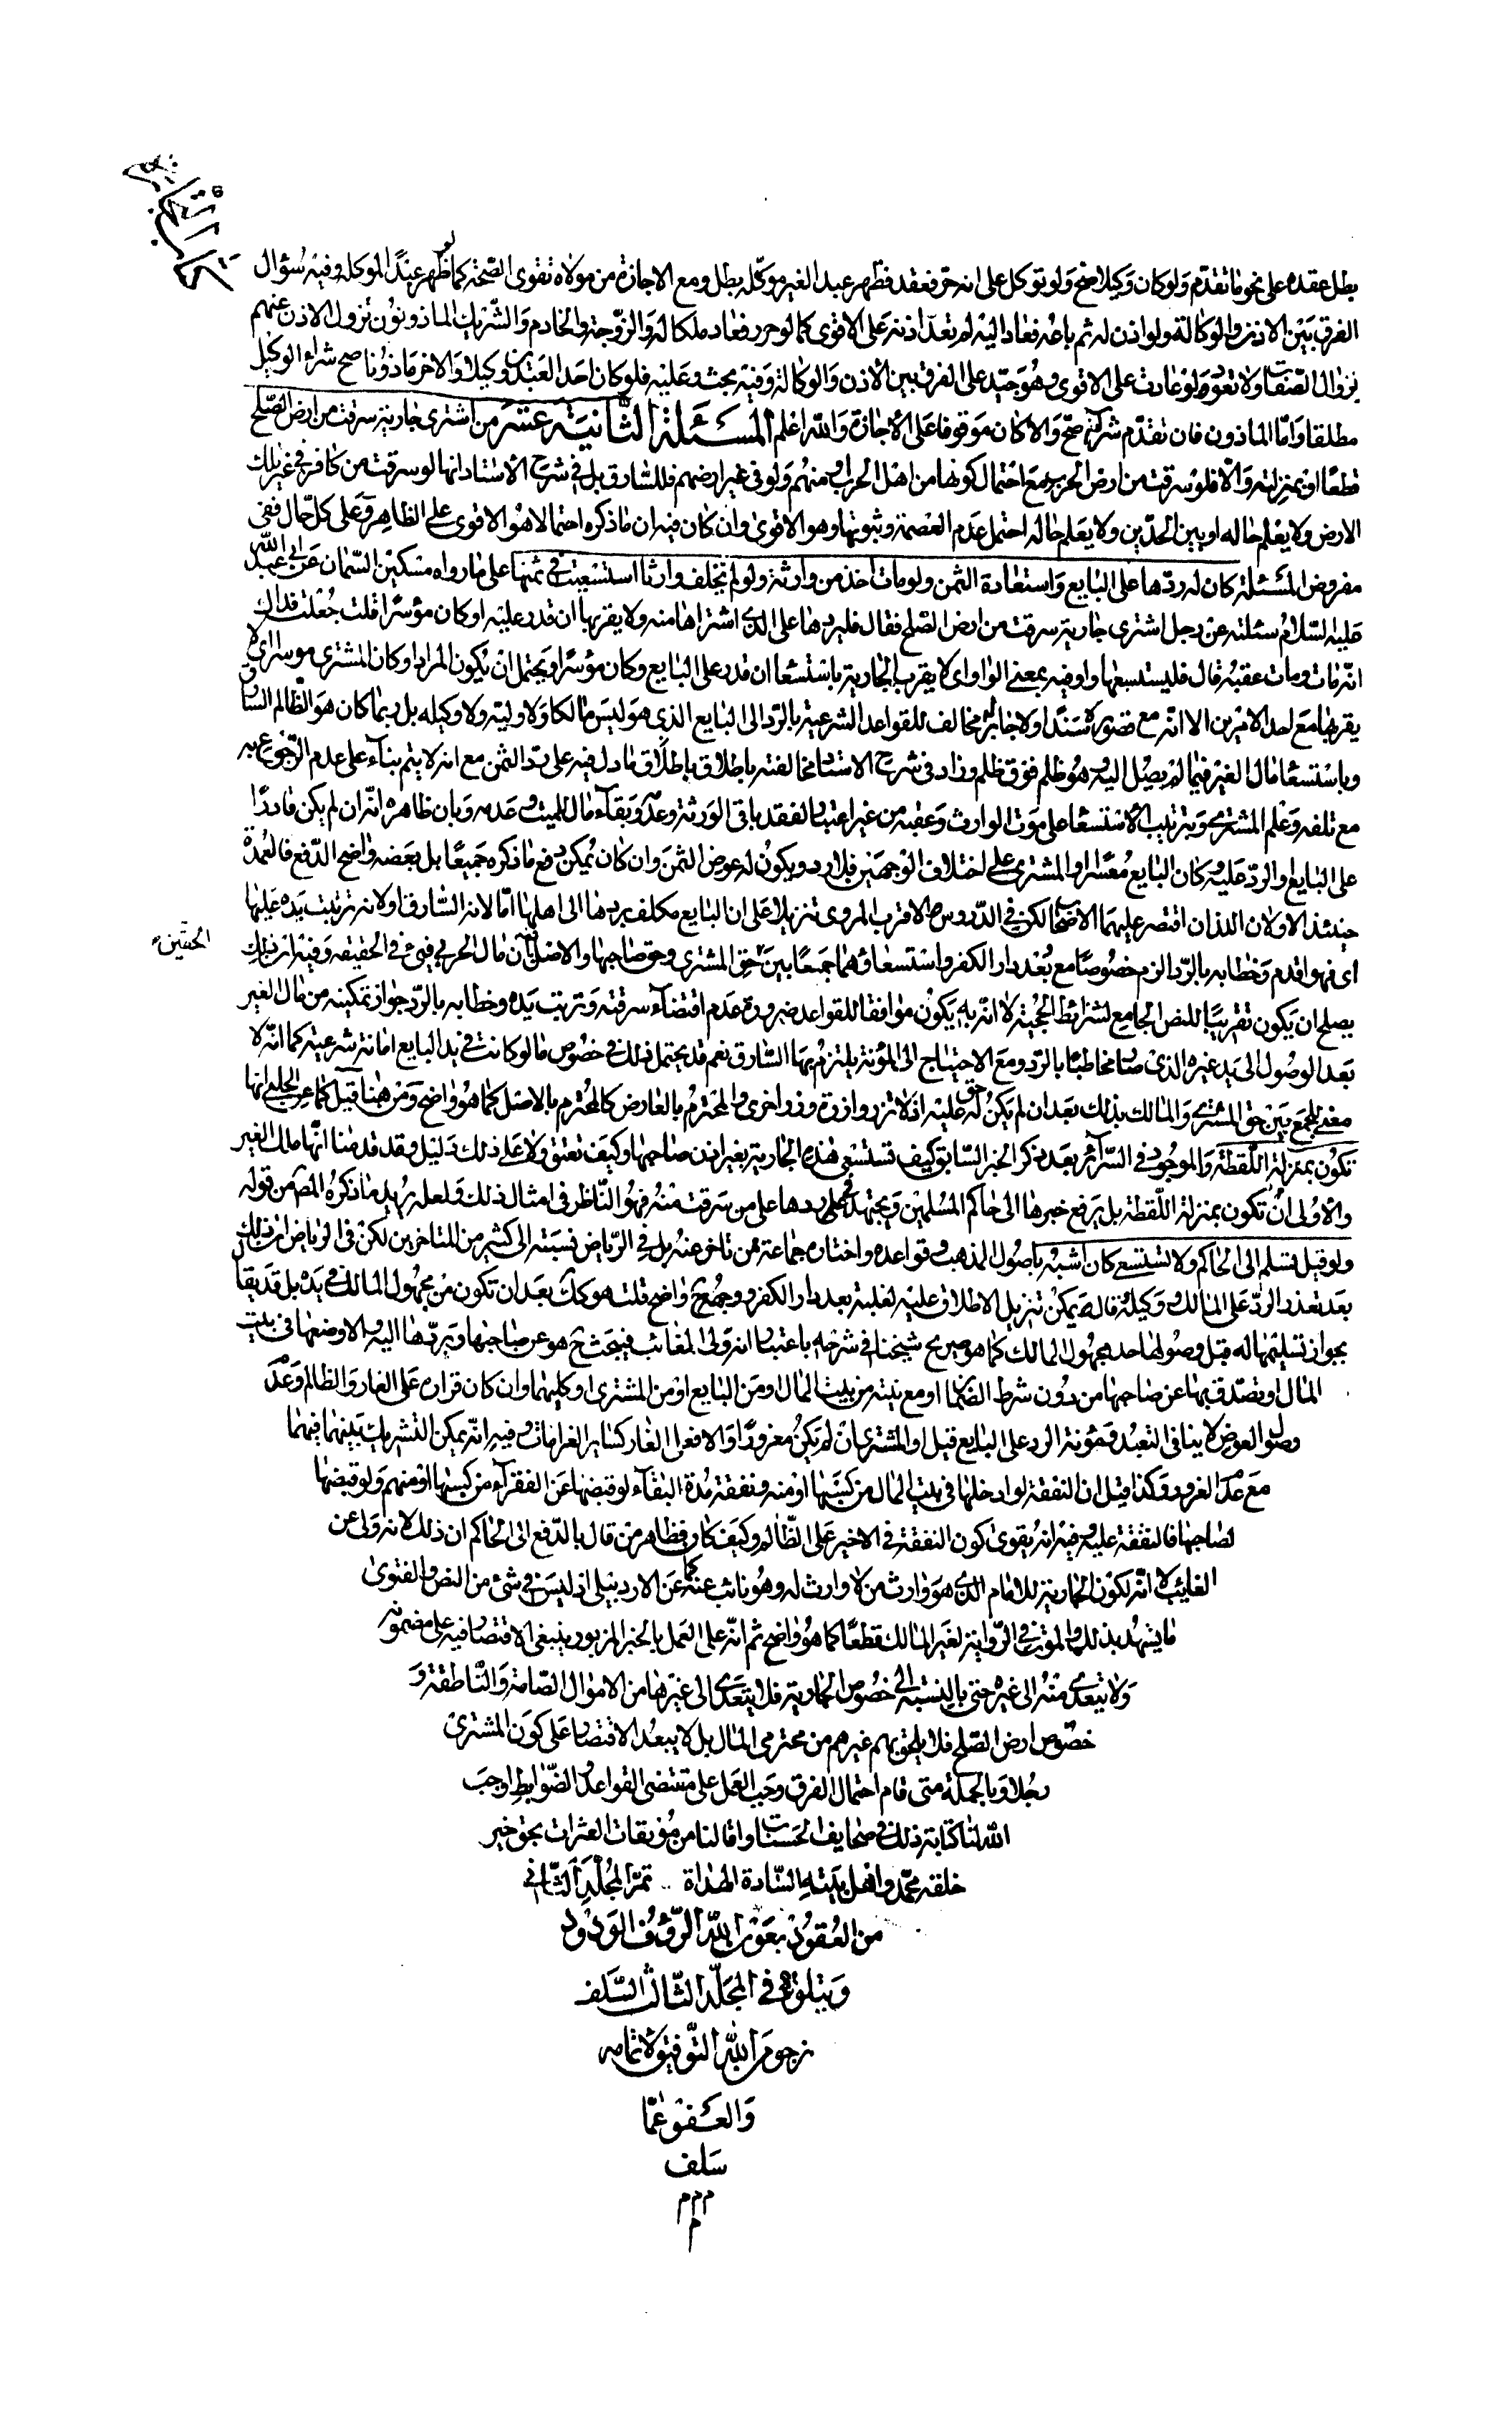 كتاب التجارة
بطل عقده على نحو ما تقدّم ولو كان وكيلا صح ولو توكل على انه حرّ فعقد فظهر عبد الغير موكّله بطل ومع الاجازة من مولاه تقوى الصّحة كما لو ظهر عبدًا لموكله وفيه سُؤال
الفرق بَيْن الاذن والوكالة ولو اذن له ثم باعه فعاد اليه لم تعد اذنه على الاقوى كما لو حرر فعاد ملكا له والزّوجة والخادم والشّريك الماذونون تزول الاذن عنهم
بزوال الصّفات ولا تعود لو عادت على الاقوى وهو جيّد على الفرق بين الاذن والوكالة وفيه بحث وعليه فلو كان احد العبدين وكيلا والاخر ماذونا صح شراء الوكيل
مطلقا وامّا الماذون فان تقدّم شرائه صحّ والا كان موقوفا على الاجازة والله اعلم المسئلة الثّانية عشر من اشترى جارية سرقت من ارض الصّلح
قطعًا او بمنزلته والّا فلو سرقت من ارض الحرب مع احتمال كونها من اهل الحراب ومنهم ولو في غير ارضهم فللسّارق بل في شرح الاستاد انها لو سرقت من كافر في غير تلك
الارض ولا يعلم حاله او بين الحدّين ولا يعلم حاله احتمل عدم العصمة وثبوتها وهو الاقوى وان كان فيه ان ما ذكره احتمالا هو الاقوى على الظاهر وعلى كل حال ففى
مفروض المسئلة كان له ردّها على البايع واستعادة الثمن ولو مات اخذ من وارثه ولو لم يخلف وارثا استسعيت في ثمنها على ما رواه مسكين السّمان عن ابي عبد الله
عليه السّلام سئلته عن رجل اشترى جارية سرقت من ارض الصّلح فقال فليردها على الذى اشتراها منه ولا يقربها ان قدر عليه او كان مؤسرًا قلت جُعلت فداك
انّه مات ومات عقبه قال فليستسعها واو فيه بمعنى الواو اى لا يقرب الجارية باستسعا ان قدر على البايع وكان مؤسرا ويحتمل ان يكون المراد او كان المشترى موسرا اى لا
يقربها مع احد الامرين الا انّه مع قصوره سندًا ولا جابر له مخالف للقواعد الشرعية بالردّ الى البايع الذى هو ليس مالكا ولا وليّه ولا وكيله بل ربما كان هو الظّالم السارق
وباستسعا مال الغير فيما لم يصل اليه وهو ظلم فوق ظلم وزاد في شرح الاستاد مخالفته باطلاق ما دل فيه على ردّ الثمن مع انه لا يتم بناء على عدم الرّجوع به
مع تلفه وعلم المشترى وبترتيب الاستسعا على موت الوارث وعقبه من غير اعتبار لفقد باقى الورثة وعدمه وبقاء مال للميت وعدمه وبان ظاهره انّه ان لم يكن قادرًا
على البايع او الردّ عليه وكان البايع مُعسرا او المشترى على اختلاف الوجهين فلا رد ويكون له عوض الثمن وان كان يُمكن دفع ما ذكره جميعًا بل بعضه واضح الدّفع فالعمدة
حينئذ الاولان اللذان اقتصر عليهما الاصحاب لكن في الدّروس الاقرب المروى تنزيلا على ان البايع مكلف بردها الى اهلها امّا لانه السّارق او لانه ترتبت يده عليها
اى فهو اقدم وخطابه بالردّ الزم خصوصًا مع بُعد دار الكفر واستسعاؤها جمعًا بين حق المشترى وحق صاحبها والاصل فيه ان مال الحربي فيئ في الحقيقة وفيه ان ذلك
يصلح ان يكون تقريبًا للنص الجامع لشرائط الحجية لا انّه به يكون موافقا للقواعد ضرورة عدم اقتضاء سرقته وترتب يده وخطابه بالردّ جواز تمكينه من مال الغير
بعد الوصول الى يد غيره الذى صار مخاطبًا بالردّ ومع الاحتياج الى المؤنة يلتزم بها السّارق نعم قد يحتمل ذلك في خصوص ما لو كانت في يد البايع امانة شرعية كما انّه لا
معنى للجمع بين حق المشترى والمالك بذلك بعد ان لم يكن له حق عليه اذ لا تزر وازرة وزر اخرى والمحترم بالعارض كالمحترم بالاصل كما هو واضح ومن هنا قيل كما عن الحلى انها
تكون بمنزلة اللّقطة والموجود في السّرآئر بعد ذكر الخبر السّابق كيف تستسعى هذه الجارية بغير اذن صاحبها وكيف تعتق ولا على ذلك دليل وقد قدمنا انّها ملك الغير
والاولى ان تكون بمنزلة اللّقطة بل يرفع خبرها الى حاكم المسلمين ويجتهد في ردها على من سرقت منه فهو النّاظر في امثال ذلك ولعله يريد ما ذكره المصر من قوله
ولو قيل تسلم الى الحاكم ولا تستسعى كان اشبه باصول المذهب وقواعده واختاره جماعة ممن تاخر عنه بل في الرّياض نسبته الى كثير من المتاخرين لكن في الرياض ان ذلك
بعد تعذر الردّ على المالك او وكيله قال ويمكن تنزيل الاطلاق عليه لغلبة بعد دار الكفر ووجهه واضح قلت هو كك بعد ان تكون من مجهول المالك في يده بل قد يقال
بجواز تسليمها له قبل وصولها حد مجهول المالك كما هو صريح شيخنا في شرحه باعتبار انه ولى الغائب فيبحث ح هو عن صاحبها ويردّها اليه والا وضعها في بيت
المال او تصدّق بها عن صاحبها من دون شرط الضمان او مع نيته من بيت المال او من البايع او من المشترى او كليهما وان كان قراره على الغار والظالم وعدم
وصول العوض لا ينافى التعبد ومؤنة الرد على البايع قيل او المشترى ان لم يكن مغرورًا والا فعلى الغار كساير الغرامات وفيه انّه يمكن التشريك بينهما فيهما
مع عدم الغرور وكذا قيل ان النفقة لو ادخلها في بيت المال من كسبها او منه ونفقة مُدة البقاء لو قبضها عن الفقراء من كسبها او منهم ولو قبضها
لصاحبها فالنفقة عليه وفيه انه يقوى كون النفقة في الاخير على الظّالم وكيف كان فظاهر من قال بالدّفع الى الحاكم ان ذلك لانه ولى عن
الغايب لا انّه لكون الجارية للامام الذى هو وارث من لا وارث له وهو نائب عنه كما عن الاردبيلى اذ ليس في شئ من النص والفتوى
ما يشهد بذلك والموت في الرّواية لغير المالك قطعًا كما هو واضح ثم انّه على العمل بالخبر المزبور ينبغى الاقتصار فيه على مضمونه
ولا يتعدى منه الى غيره حتى بالنسبة الى خصوص الجارية فلا يتعدى الى غيرها من الاموال الصّامتة والنّاطقة و
خصوص ارض الصّلح فلا يلحق بهم غيرهم من محترمى المال بل لا يبعد الاقتصار على كون المشترى
رجُلا وبالجملة متى قام احتمال الفرق وجب العمل على مقتضى القواعد والضّوابط اوجب
الله لنا كتابة ذلك في صحايف الحسنات واقالنا من موبقات العثرات بحق خير
خلقه محمّد واهل بيته السّادة الهداة تمّ المجلّد الثّانى
من العقود بعون الله الرّؤف الودود
ويتلوه في المجلّد الثّالث السّلف
نرجو من الله التّوفيق لاتمامه
والعفو عمّا
سلف
م م م
م